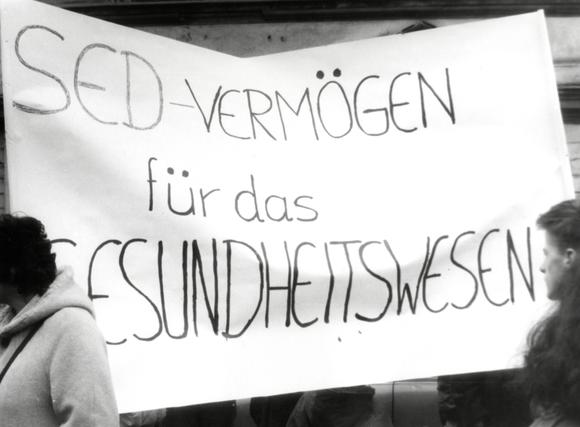 SED-VERMÖGEN
für das
GESUNDHEITSWESEN